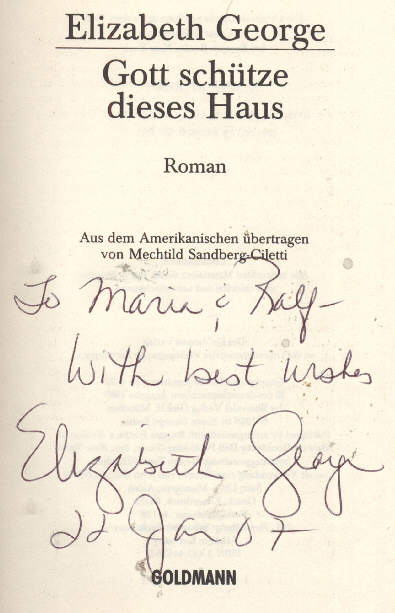 Elizabeth George
Gott schütze
dieses Haus
Roman
Aus dem Amerikanischen übertragen
von Mechtild Sandberg-Ciletti
To Maria & Ralf-
With best wishes
Elizabeth George
22 Jan 07
GOLDMANN